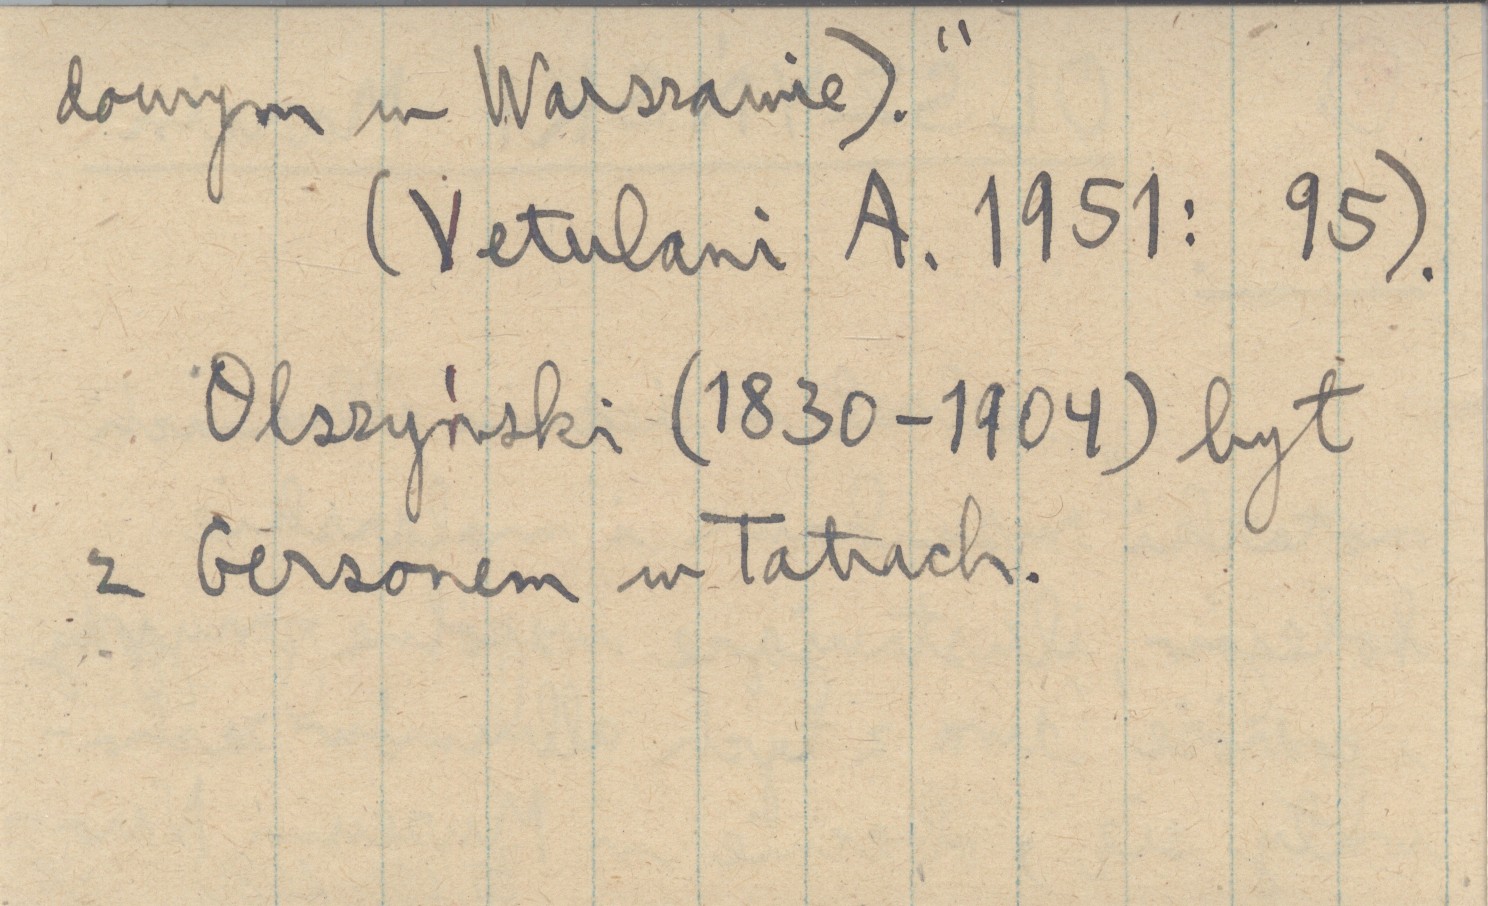 dowym w Warszawie)."
(Vetulani A. 1951: 95).
Olszyński (1830-1904) był
z Gersonem w Tatrach.